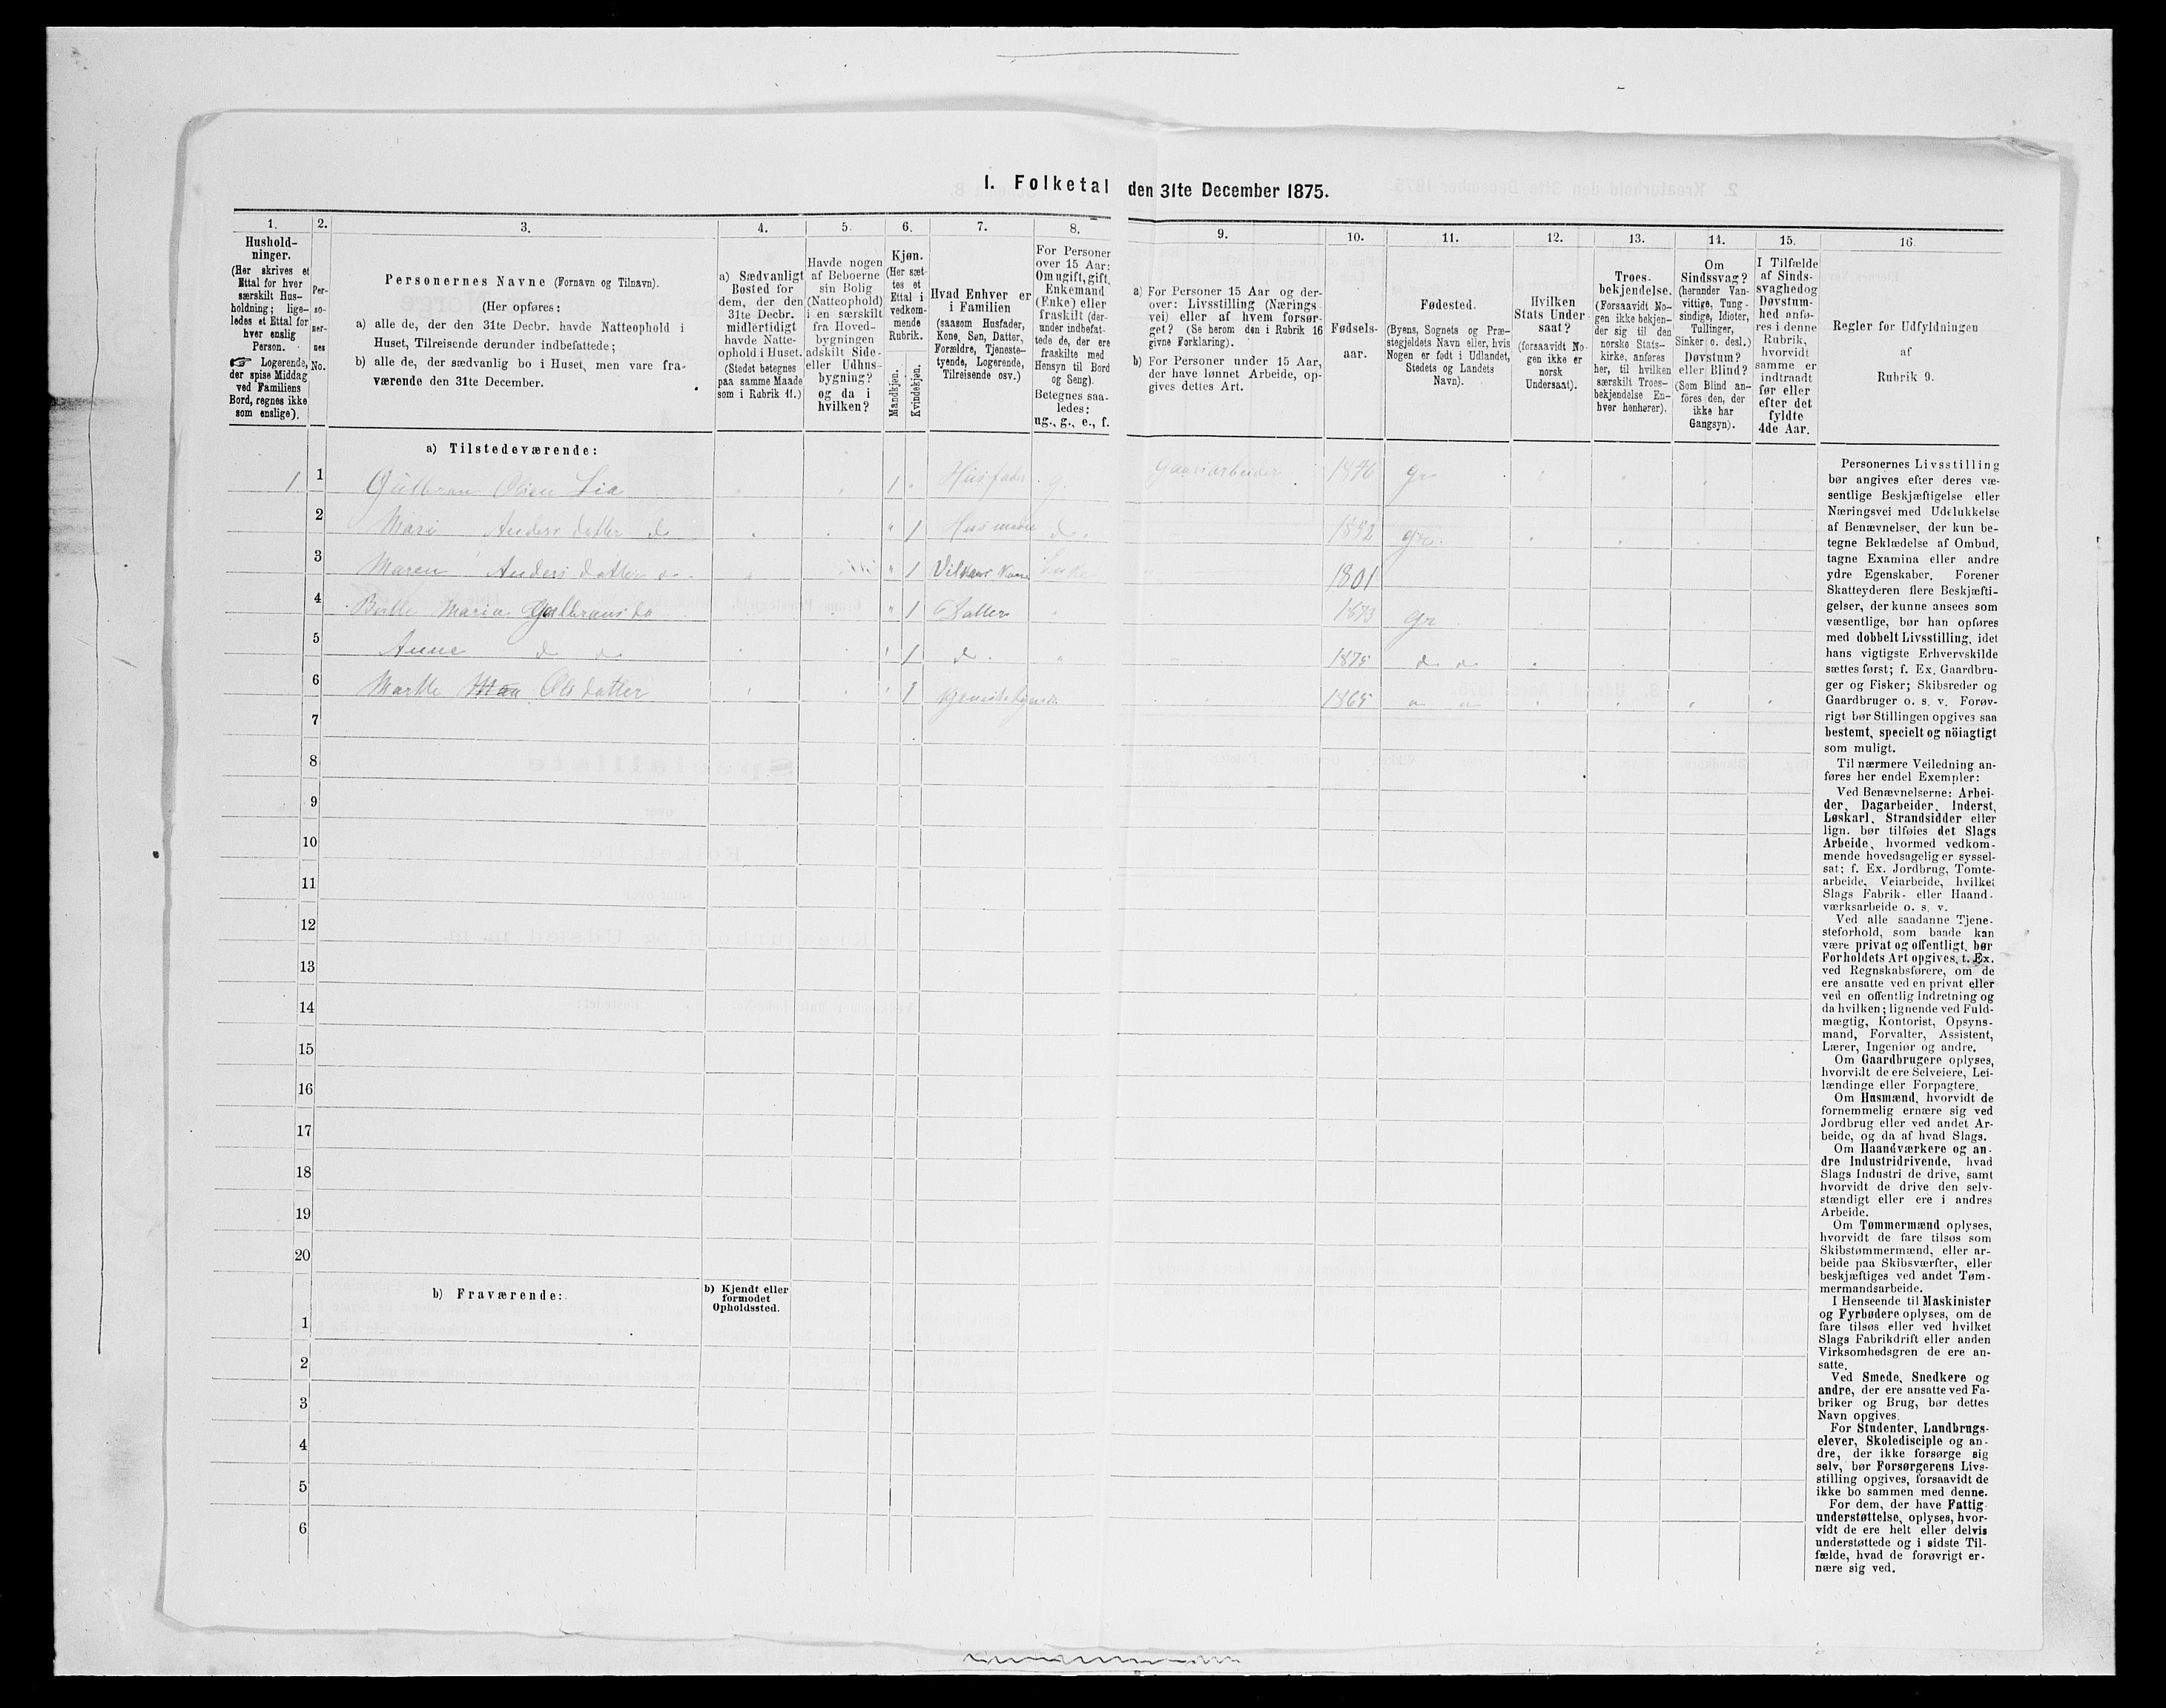 1. Folketal den 31te December 1875.
1.
Hushold-
ninger.
(Her skrives et
Ettal for hver
særskilt Hus-
holdning; lige-
ledes et Ettal for
hver enslig
Person.
☞ Logerende,
der spise Middag
ved Familiens
Bord, regnes ikke
som enslige).
2.
Per-
so-
ner-
nes
No.
3.
Personernes Navne (Fornavn og Tilnavn).
(Her opføres:
a) alle de, der den 31te Decbr. havde Natteophold i
Huset, Tilreisende derunder indbefattede;
b) alle de, der sædvanlig bo i Huset, men vare fra-
værende den 31te December.
4.
a) Sædvanligt
Bosted for
dem, der den
31te Decbr.
midlertidigt
havde Natte-
ophold i Huset.
(Stedet betegnes
paa samme Maade
som i Rubrik 11.)
5.
Havde nogen
af Beboerne
sin Bolig
(Natteophold)
i en særskilt
fra Hoved-
bygningen
adskilt Side-
eller Udhus-
bygning?
og da i
hvilken?
6.
Kjøn.
(Her sæt-
tes et
Ettal i
vedkom-
mende
Rubrik.
Mandkjøn.
Kvindekjøn.
7.
Hvad Enhver er
i Familien
(saasom Husfader,
Kone, Søn, Datter,
Forældre, Tjeneste-
tyende, Logerende,
Tilreisende osv.)
8.
For Personer
over 15 Aar:
Om ugift, gift,
Enkemand
(Enke) eller
fraskilt (der-
under indbefat-
tede de, der ere
fraskilte med
Hensyn til Bord
og Seng).
Betegnes saa-
ledes:
ug., g., e., f.
9.
a) For Personer 15 Aar og der-
over: Livsstilling (Nærings-
vei) eller af hvem forsør-
get? (Se herom den i Rubrik 16
givne Forklaring).
b) For Personer under 15 Aar,
der have lønnet Arbeide, op-
gives dettes Art.
10.
Fødsels-
aar.
11.
Fødested.
(Byens, Sognets og Præ-
stegjeldets Navn eller, hvis
Nogen er født i Udlandet,
Stedets og Landets
Navn).
12.
Hvilken
Stats Under-
saat?
(forsaavidt No-
gen ikke er
norsk
Undersaat).
13.
Troes-
bekjendelse.
(Forsaavidt No-
gen ikke bekjen-
der sig til den
norske Stats-
kirke, anføres
her, til hvilken
særskilt Troes-
bekjendelse En-
hver henhører).
14.
Om
Sindssvag?
(herunder Van-
vittige, Tung-
sindige, Idioter,
Tullinger,
Sinker o. desl.)
Døvstum?
eller Blind?
(Som Blind an-
föres den, der
ikke har
Gangsyn).
15.
I Tilfælde
af Sinds-
svaghed og
Døvstum-
hed anfø-
res i denne
Rubrik,
hvorvidt
samme er
indtraadt
før eller
efter det
fyldte
4de Aar.
16.
Regler for Udfyldningen
af
Rubrik 9.
a) Tilstedeværende:
1 1 Gulbran Olsen Lia 1 Husfader g. Gaardarbeider 1846 Gr
2 Mari Anders datter do 1 Husmoder d. 1852 Gr.
3 Maren Anders datter 1 Enke 1801
4 Berthe Maria Gulbrans do 1 Datter 1873 Gr
5 Anne d d 1 d. 1875 d d
6 Marthe Olsdatter 1 1865
7
8
9
10
11
12
13
14
15
16
17
18
19
20
b) Fraværende:
b) Kjendt eller
formodet
Opholdssted.
1
2
3
4
5
6
Personernes Livsstilling
bør angives efter deres væ-
sentlige Beskjæftigelse eller
Næringsvei med Udelukkelse
af Benævnelser, der kun be-
tegne Beklædelse af Ombud,
tagne Examina eller andre
ydre Egenskaber. Forener
Skatteyderen flere Beskjæfti-
gelser, der kunne ansees som
væsentlige, bør han opføres
med dobbelt Livsstilling, idet
hans vigtigste Erhvervskilde
sættes først; f. Ex. Gaardbru-
ger og Fisker; Skibsreder og
Gaardbruger o. s. v. Forøv-
rigt bør Stillingen opgives saa
bestemt, specielt og nöiagtigt
som muligt.
Til nærmere Veiledning an-
føres her endel Exempler:
Ved Benævnelserne: Arbei-
der, Dagarbeider, Inderst,
Løskarl, Strandsidder eller
lign. bør tilføies det Slags
Arbeide, hvormed vedkom-
mende hovedsagelig er syssel-
sat; f. Ex. Jordbrug, Tomte-
arbeide, Veiarbeide, hvilket
Slags Fabrik- eller Haand-
værksarbeide o. s. v.
Ved alle saadanne Tjene-
steforhold, som baade kan
være privat og offentligt, bør
Forholdets Art opgives, t. Ex.
ved Regnskabsførere, om de
ere ansatte ved en privat eller
ved en offentlig Indretning og
da hvilken; lignende ved Fuld-
mægtig, Kontorist, Opsyns-
mand, Forvalter, Assistent,
Lærer, Ingeniør og andre.
Om Gaardbrugere oplyses,
hvorvidt de ere Selveiere, Lei-
lændinge eller Forpagtere.
Om Husmænd, hvorvidt de
fornemmelig ernære sig ved
Jordbrug eller ved andet Ar-
beide, og da af hvad Slags.
Om Haandværkere og an-
dre Industridrivende, hvad
Slags Industri de drive, samt
hvorvidt de drive den selv-
stændigt eller ere i andres
Arbeide.
Om Tømmermænd oplyses,
hvorvidt de fare tilsøs som
Skibstømmermænd, eller ar-
beide paa Skibsværfter, eller
beskjæftiges ved andet Tøm-
mermandsarbeide.
I Henseende til Maskinister
og Fyrbødere oplyses, om de
fare tilsøs eller ved hvilket
Slags Fabrikdrift eller anden
Virksomhedsgren de ere an-
satte.
Ved Smede, Snedkere og
andre, der ere ansatte ved Fa-
briker og Brug, bør dettes
Navn opgives.
For Studenter, Landbrugs-
elever, Skoledisciple og an-
dre, der ikke forsørge sig
selv, bør Forsørgerens Livs-
stilling opgives, forsaavidt de
ikke bo sammen med denne.
For dem, der have Fattig-
understøttelse, oplyses, hvor-
vidt de ere helt eller delvis
understøttede og i sidste Til-
fælde, hvad de forøvrigt er-
nære sig ved.